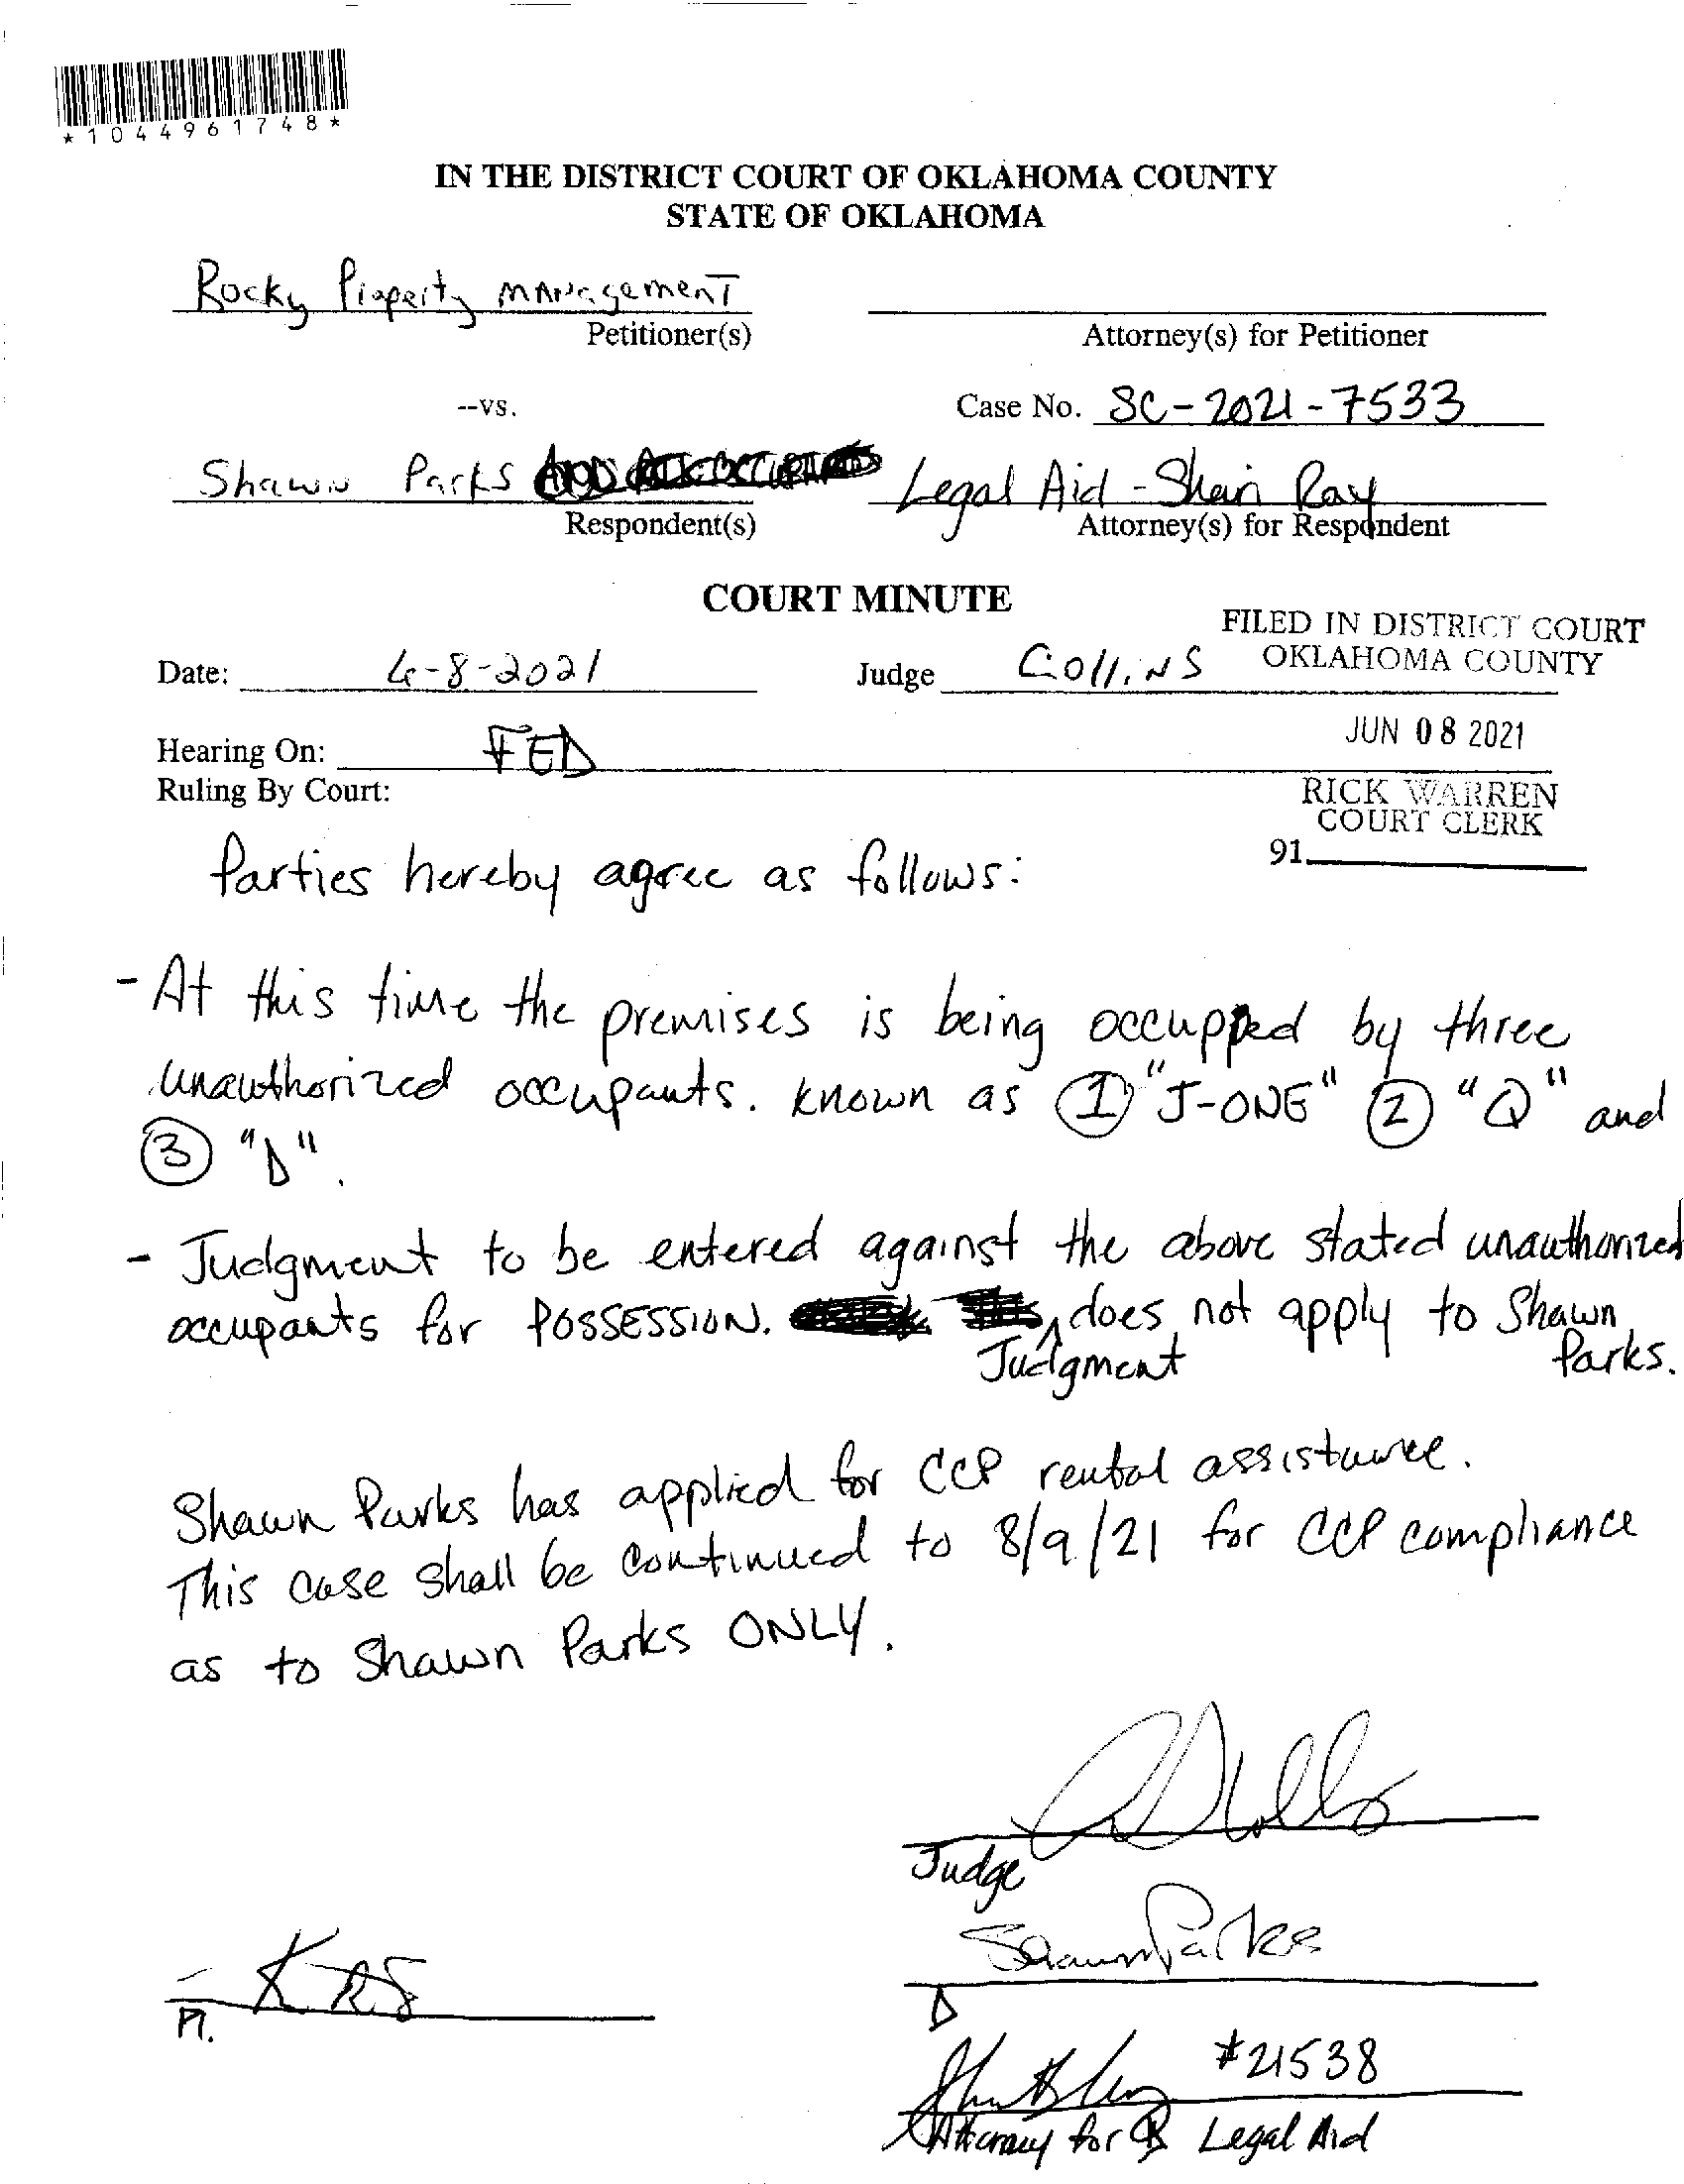 *1044961748*
IN THE DISTRICT COURT OF OKLAHOMA COUNTY
STATE OF OKLAHOMA
Rocky Property MANAgemenT
Petitioner(s)
Attorney(s) for Petitioner
--vs.
Case No. SC-2021-7533
Shawn Parks
Legal Aid - Shain Ray
Respondent(s)
Attorney(s) for Respondent
COURT MINUTE
FILED IN DISTRICT COURT
OKLAHOMA COUNTY
Date: 6-8-2021
Judge Collins
JUN 08 2021
Hearing On: FED
Ruling By Court:
RICK WARREN
COURT CLERK
91
Parties hereby agree as follows:
- At this time the premises is being occuppied by three
unauthorized occupants. known as ① "J-ONE" ② "Q" and
③ "D".
- Judgment to be entered against the above stated unauthorized
occupants for POSSESSION. Judgment does not apply to Shawn
Parks.
Shawn Parks has applied for CCP rental assistance.
This case shall be continued to 8/9/21 for CCP compliance
as to Shawn Parks ONLY.
Judge
Shawn Parks
Δ
Pl.
#21538
Attorney for Δ Legal Aid